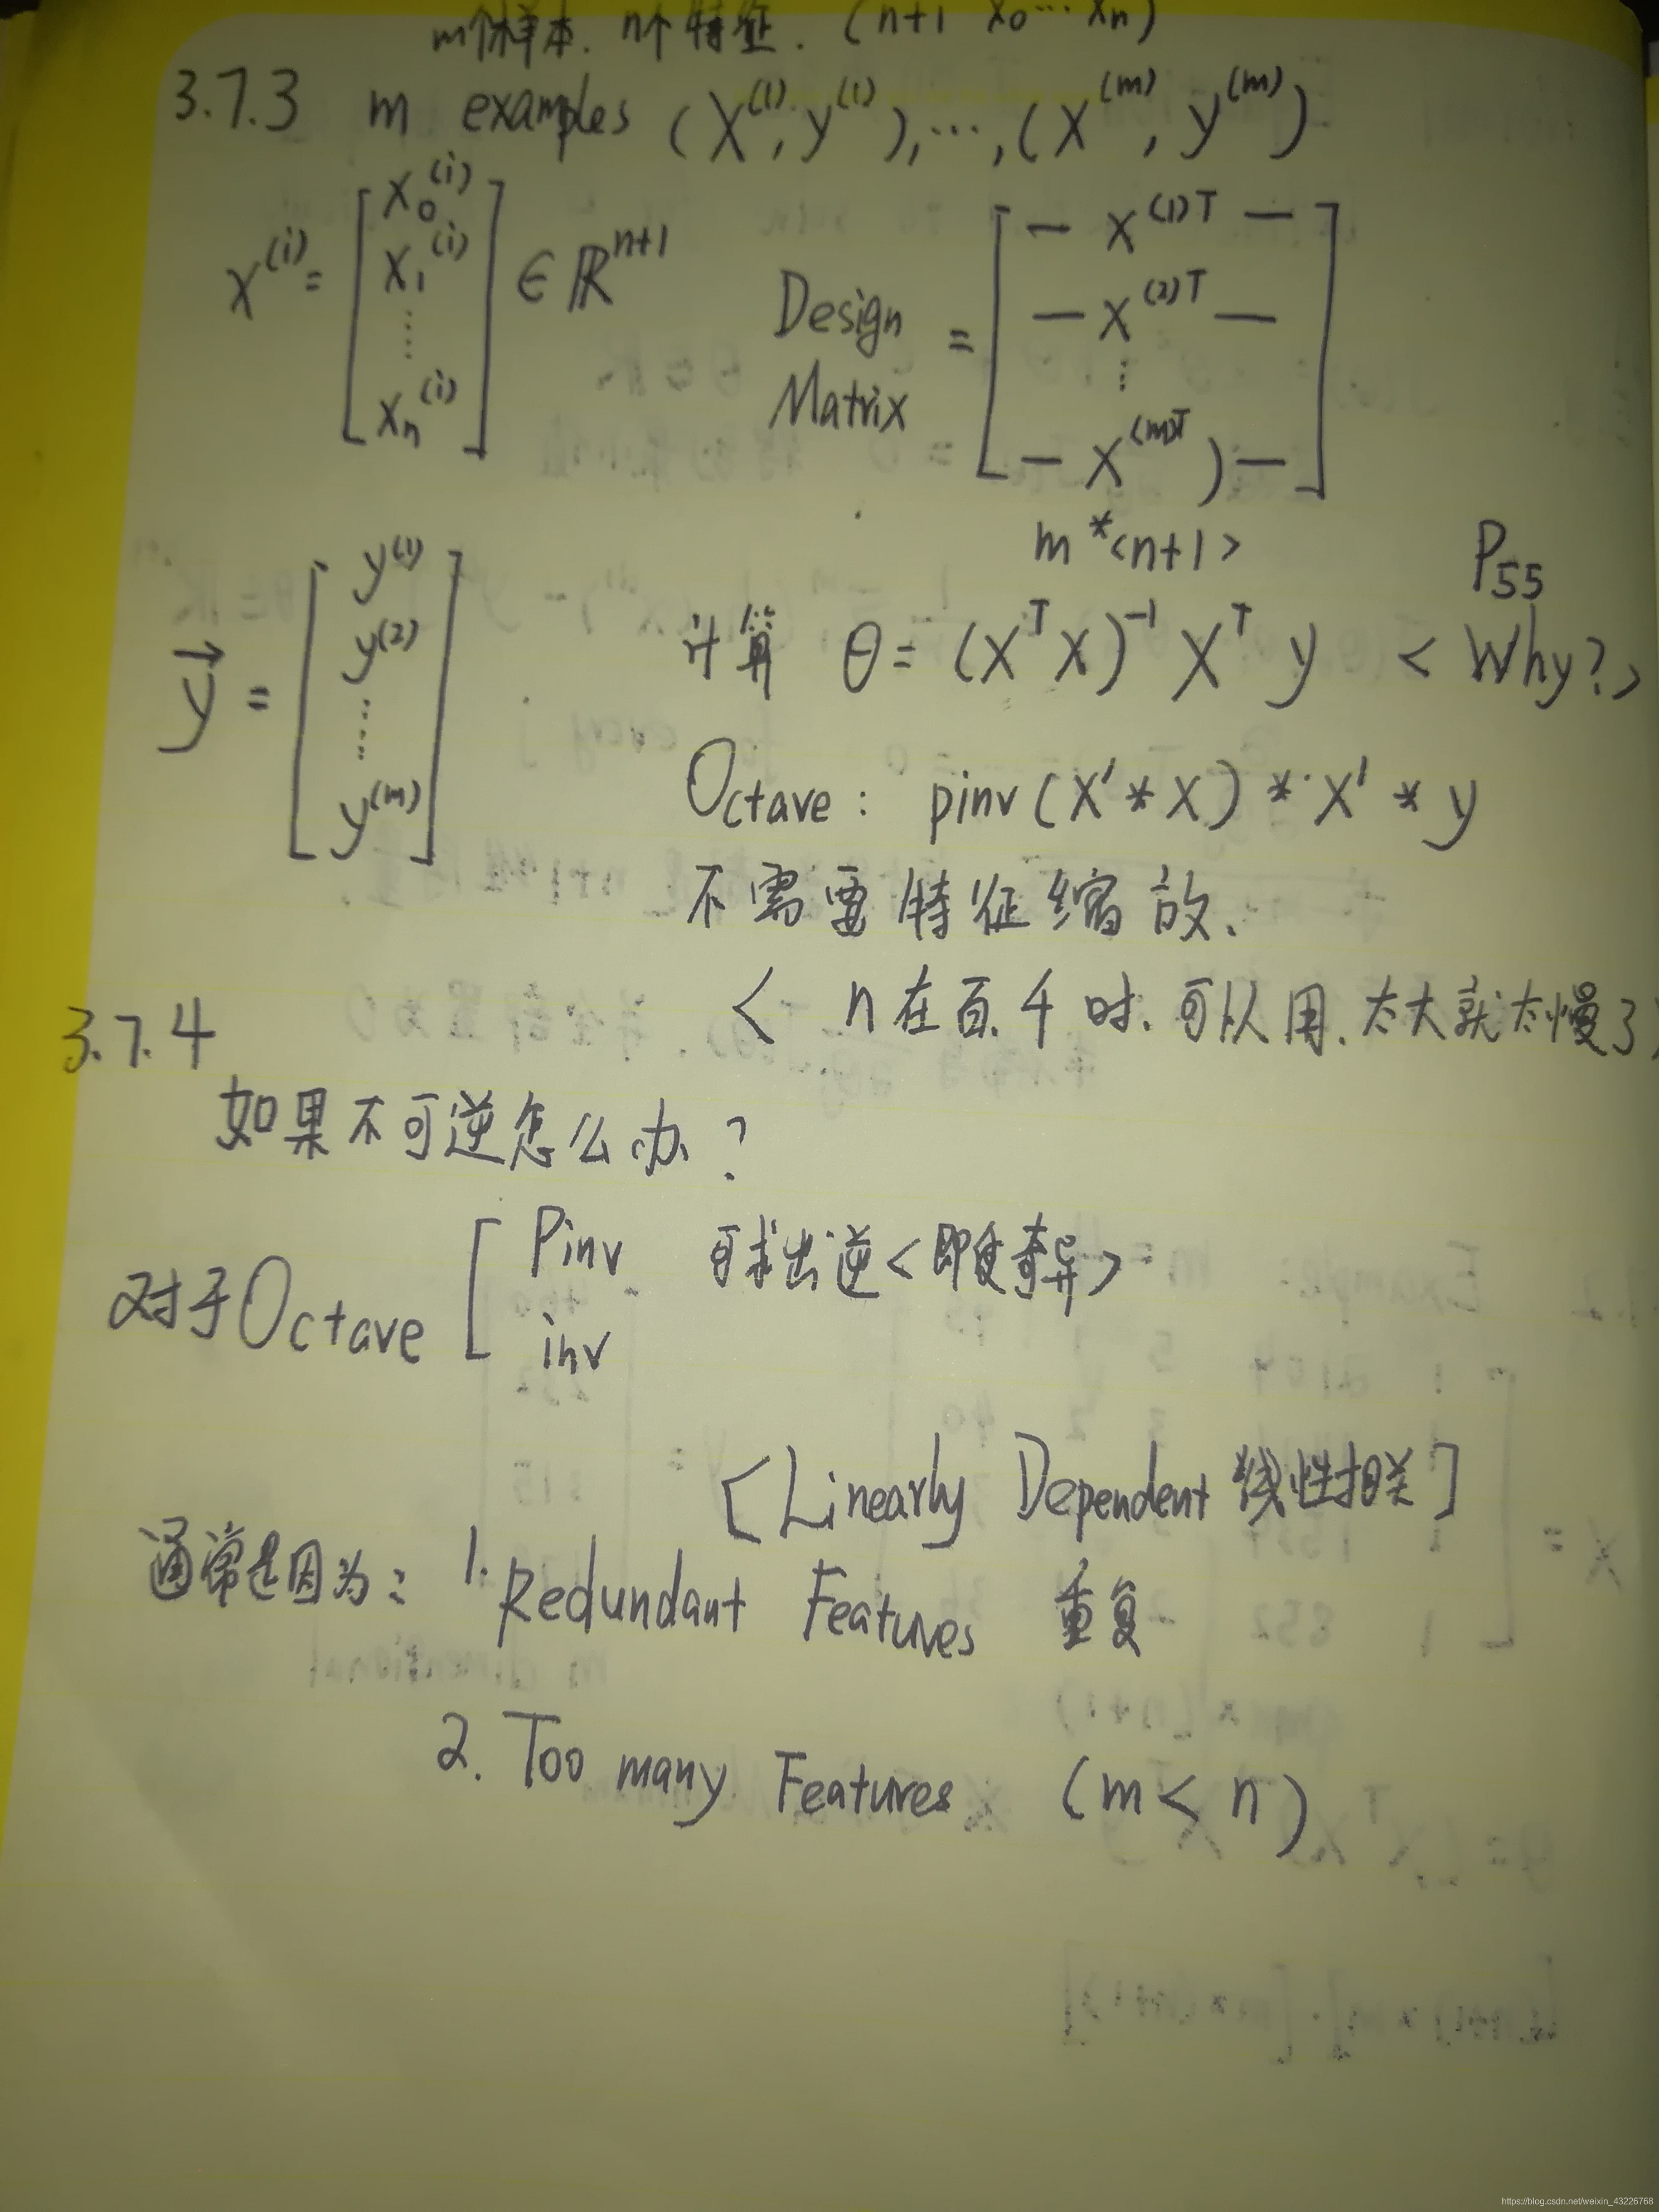 m个样本. n个特征. (n+1 x₀…xₙ)
3.7.3 m examples (X⁽¹⁾, y⁽¹⁾), …, (X⁽ᵐ⁾, y⁽ᵐ⁾)
x⁽ⁱ⁾ = [ x₀⁽ⁱ⁾ x₁⁽ⁱ⁾ ⋮ xₙ⁽ⁱ⁾ ] ∈ ℝⁿ⁺¹
Design Matrix = [ — x⁽¹⁾ᵀ — — x⁽²⁾ᵀ — ⋮ — x⁽ᵐ⁾ᵀ ) — ]
m*<n+1>
P₅₅
y⃗ = [ y⁽¹⁾ y⁽²⁾ ⋮ y⁽ᵐ⁾ ]
计算 θ = (XᵀX)⁻¹Xᵀy <Why?>
Octave: pinv(X'*X)*X'*y
不需要特征缩放.
< n在百.千时.可以用.太大就太慢了>
3.7.4
如果不可逆怎么办?
对于Octave [ Pinv 可求出逆<即使奇异>
inv
[Linearly Dependent 线性相关]
通常是因为: 1. Redundant Features 重复
2. Too many Features (m<n)
https://blog.csdn.net/weixin_43226768